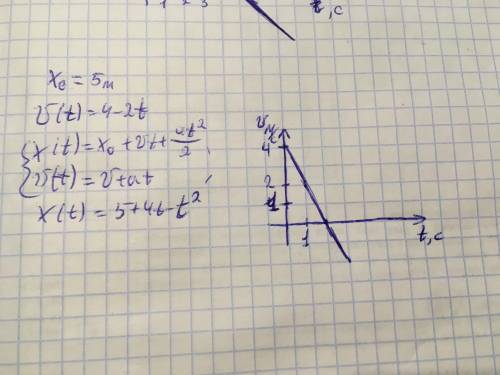 1 2 3
t, c
x₀ = 5м
v(t) = 4 - 2t
x(t) = x₀ + vt + at²/2 ;
v(t) = v + at ;
x(t) = 5 + 4t - t²
v, м/с
4
2
1
1
t, c